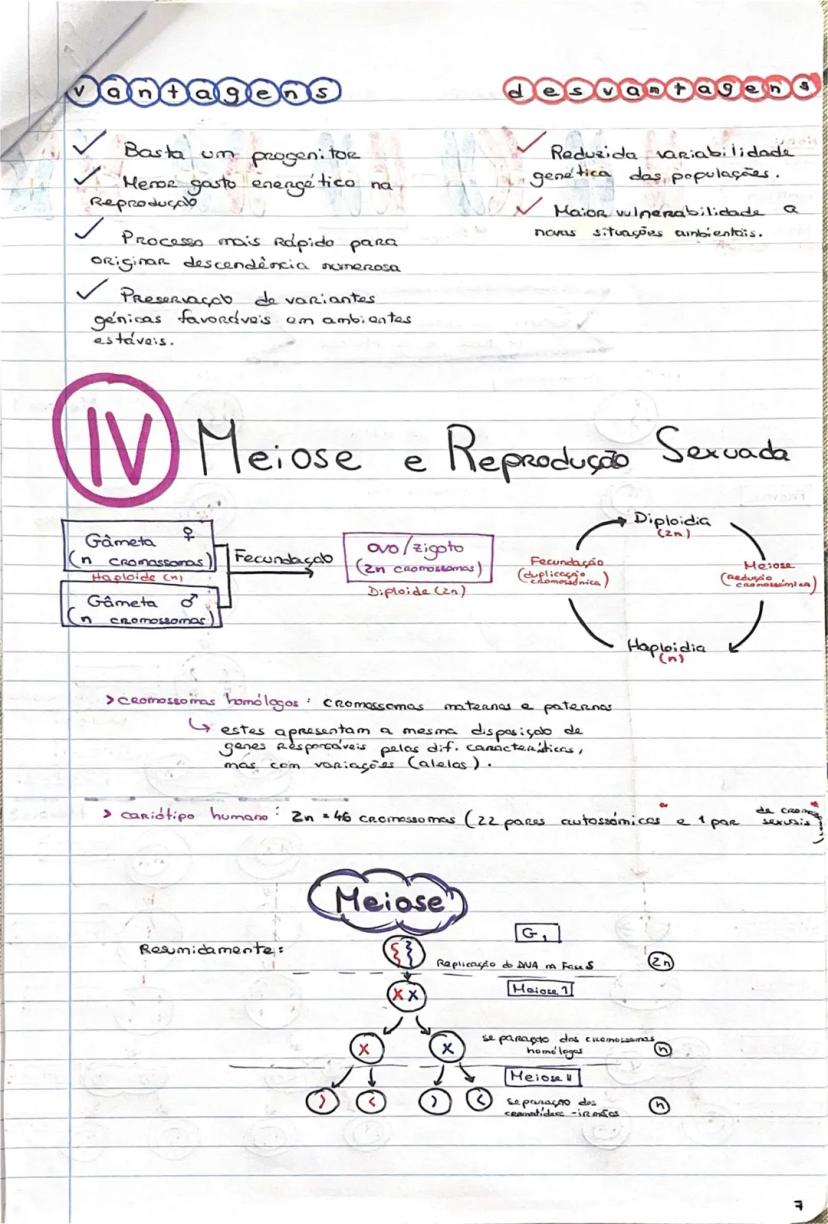 vantagens
✓ Basta um progenitor
✓ Menor gasto energético na
Reprodução
✓ Processo mais Rápido para
originar descendência numerosa
✓ Preservação de variantes
génicas favoráveis em ambientes
estáveis.
desvantagens
✓ Reduzida variabilidade
genética das populações.
✓ Maior vulnerabilidade a
novas situações ambientais.
IV Meiose e Reprodução Sexuada
Gâmeta ♀
(n cromossomas)
Haploide (n)
Gâmeta ♂
(n cromossomas)
Fecundação
ovo/zigoto
(2n cromossomas)
Diploide (2n)
Diploidia
(2n)
Meiose
(Redução
cromossómica)
Haploidia
(n)
Fecundação
(duplicação
cromossómica)
> cromossomas homólogos: cromossomas maternos e paternos
↳ estes apresentam a mesma disposição de
genes responsáveis pelas dif. características,
mas com variações (alelos).
> cariótipo humano: 2n = 46 cromossomas (22 pares autossómicos e 1 par de cromo
sexuais)
Meiose
Resumidamente:
G1
Replicação do DNA na Fase S
2n
Meiose I
separação dos cromossomas
homólogos
n
Meiose II
separação dos
cromatídeos-irmãos
n
7